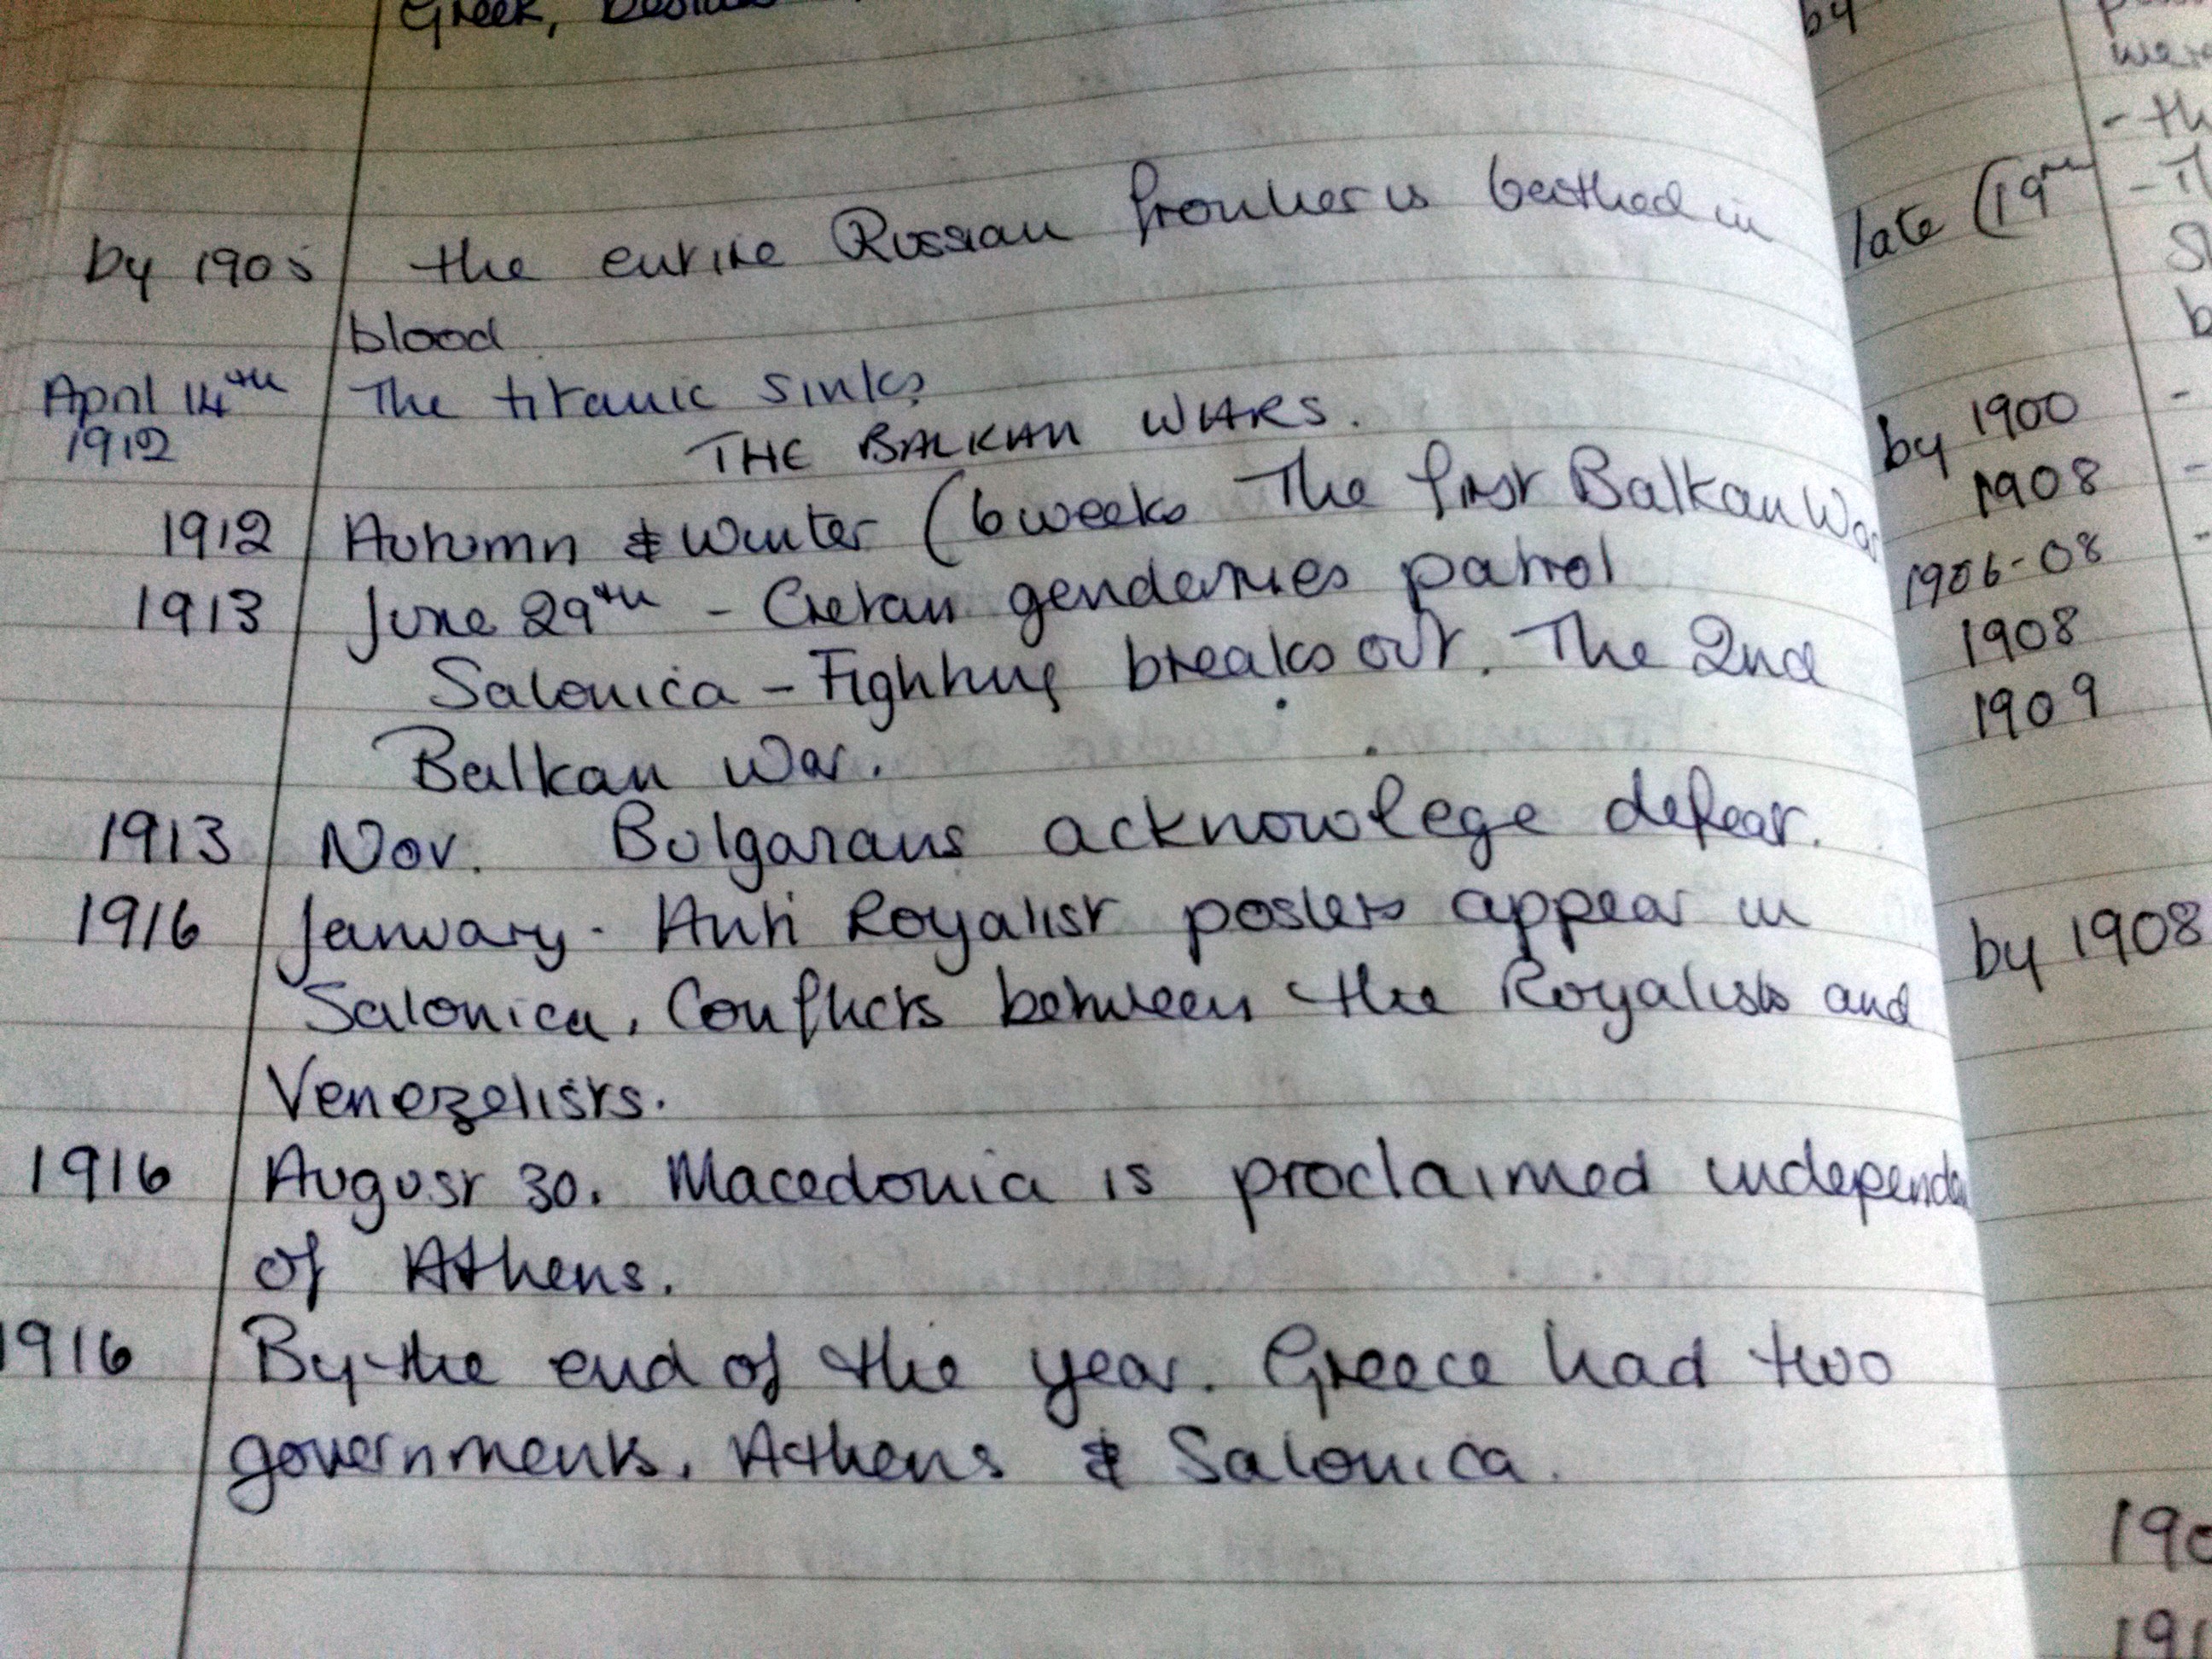 Greek,
by 1905 the entire Russian frontier is bathed in
blood
April 14th The titanic sinks
1912
THE BALKAN WARS.
1912 Autumn & Winter (6 weeks The first Balkan War
1913 June 29th - Cretan gendarmies patrol
Salonica - Fighting breaks out. The 2nd
Balkan War.
1913 Nov. Bulgarians acknowlege defeat.
1916 January - Anti Royalist posters appear in
Salonica. Conflicts between the Royalists and
Venezelists.
1916 August 30. Macedonia is proclaimed independen
of Athens.
1916 By the end of the year. Greece had two
governments. Athens & Salonica.
by
late (19
by 1900
1908
1906-08
1908
1909
by 1908
190
191